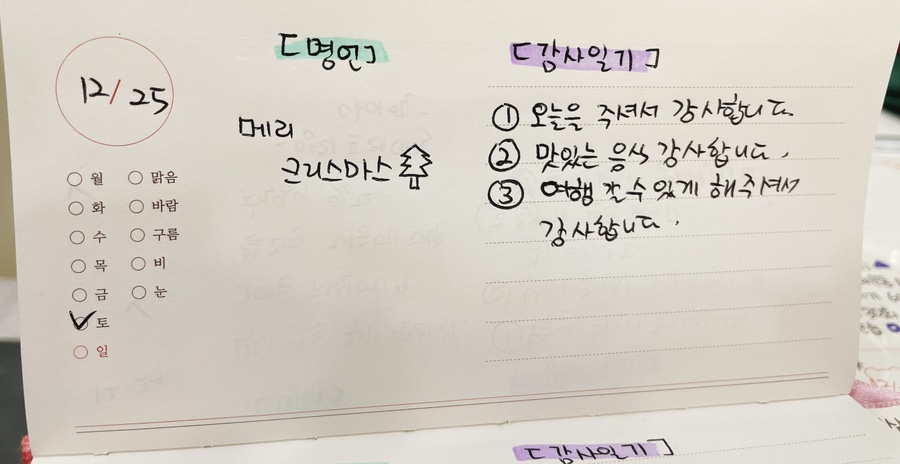 12/25
월 맑음
화 바람
수 구름
목 비
금 눈
토
일
[명언]
메리
크리스마스
[감사일기]
① 오늘을 주셔서 감사합니다
② 맛있는 음식 감사합니다.
③ 여행 갈 수 있게 해주셔서
감사합니다.
[감사일기]